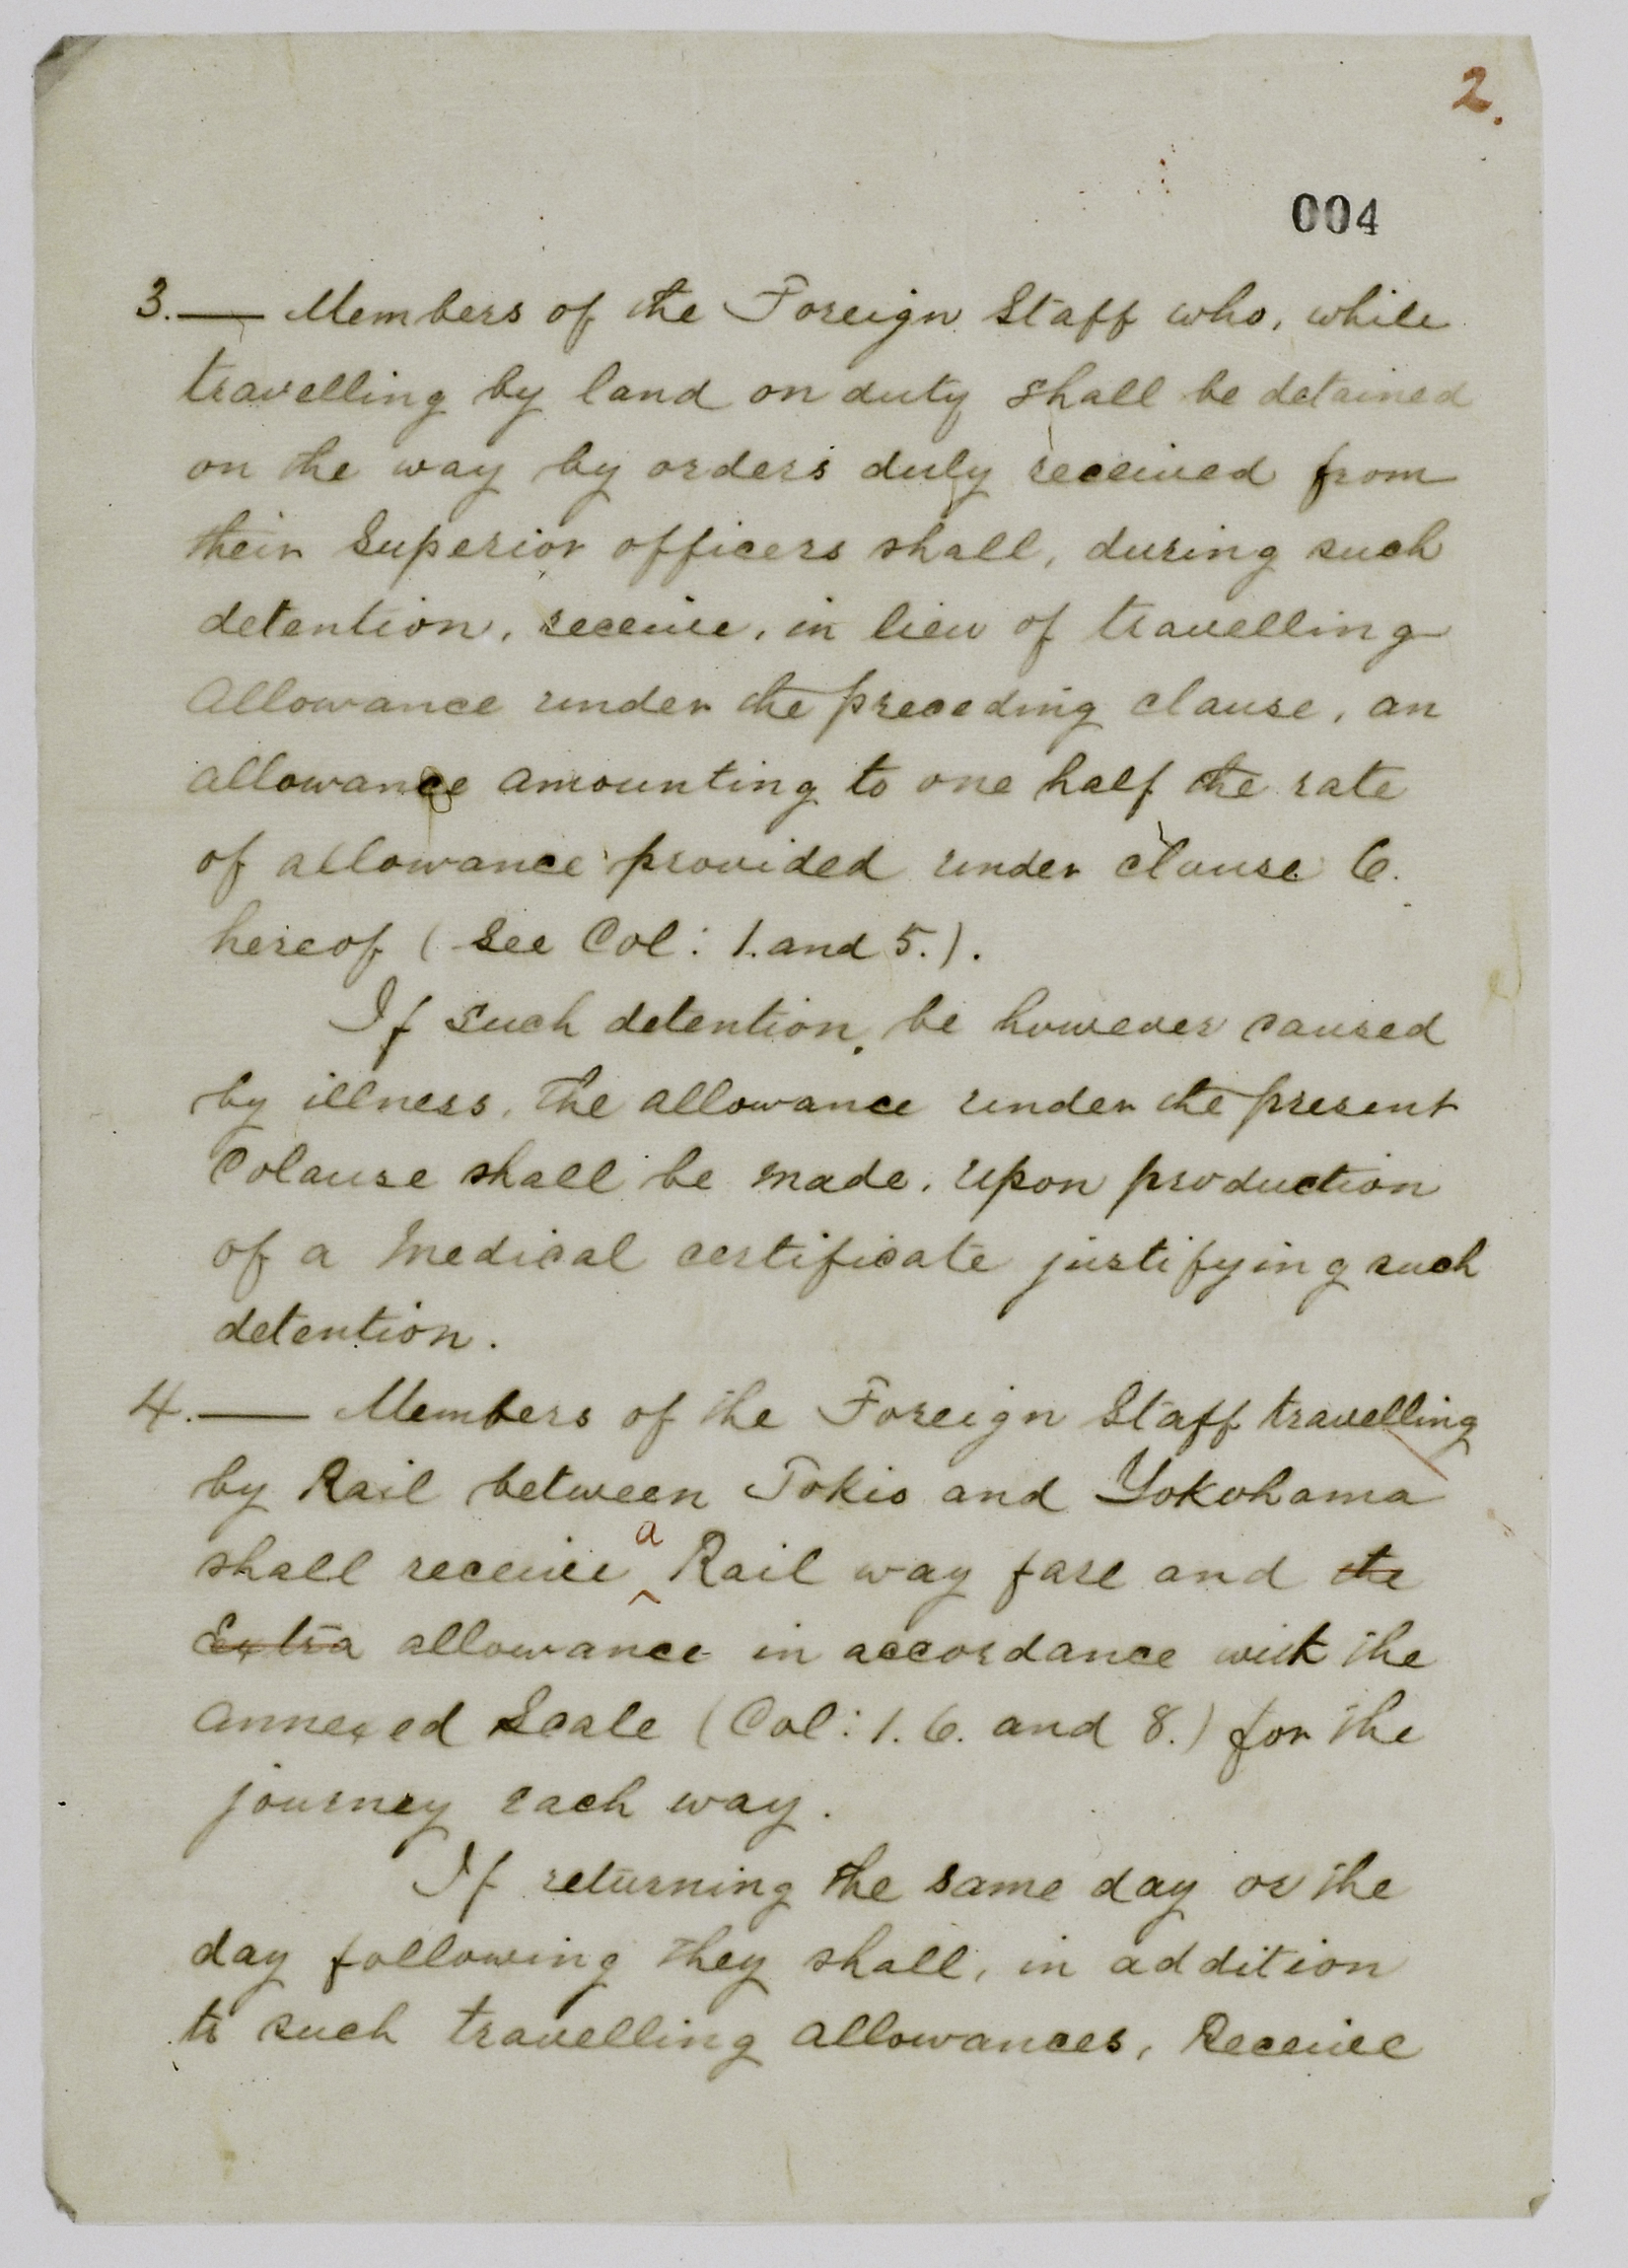 2.
004
3.— Members of the Foreign Staff who, while
travelling by land on duty shall be detained
on the way by orders duly received from
their Superior officers shall, during such
detention, receive, in lieu of travelling
Allowance under the preceding clause, an
allowance amounting to one half the rate
of allowance provided under clause 6.
hereof (See Col: 1. and 5.).
If such detention, be however caused
by illness, the allowance under the present
Colause shall be made, upon production
of a medical certificate justifying such
detention.
4.— Members of the Foreign Staff travelling
by Rail between Tokio and Yokohama
shall receive a Rail way fare and the
Extra allowance in accordance with the
annexed Scale (Col: 1. 6. and 8.) for the
journey each way.
If returning the same day or the
day following they shall, in addition
to such travelling allowances, Receive